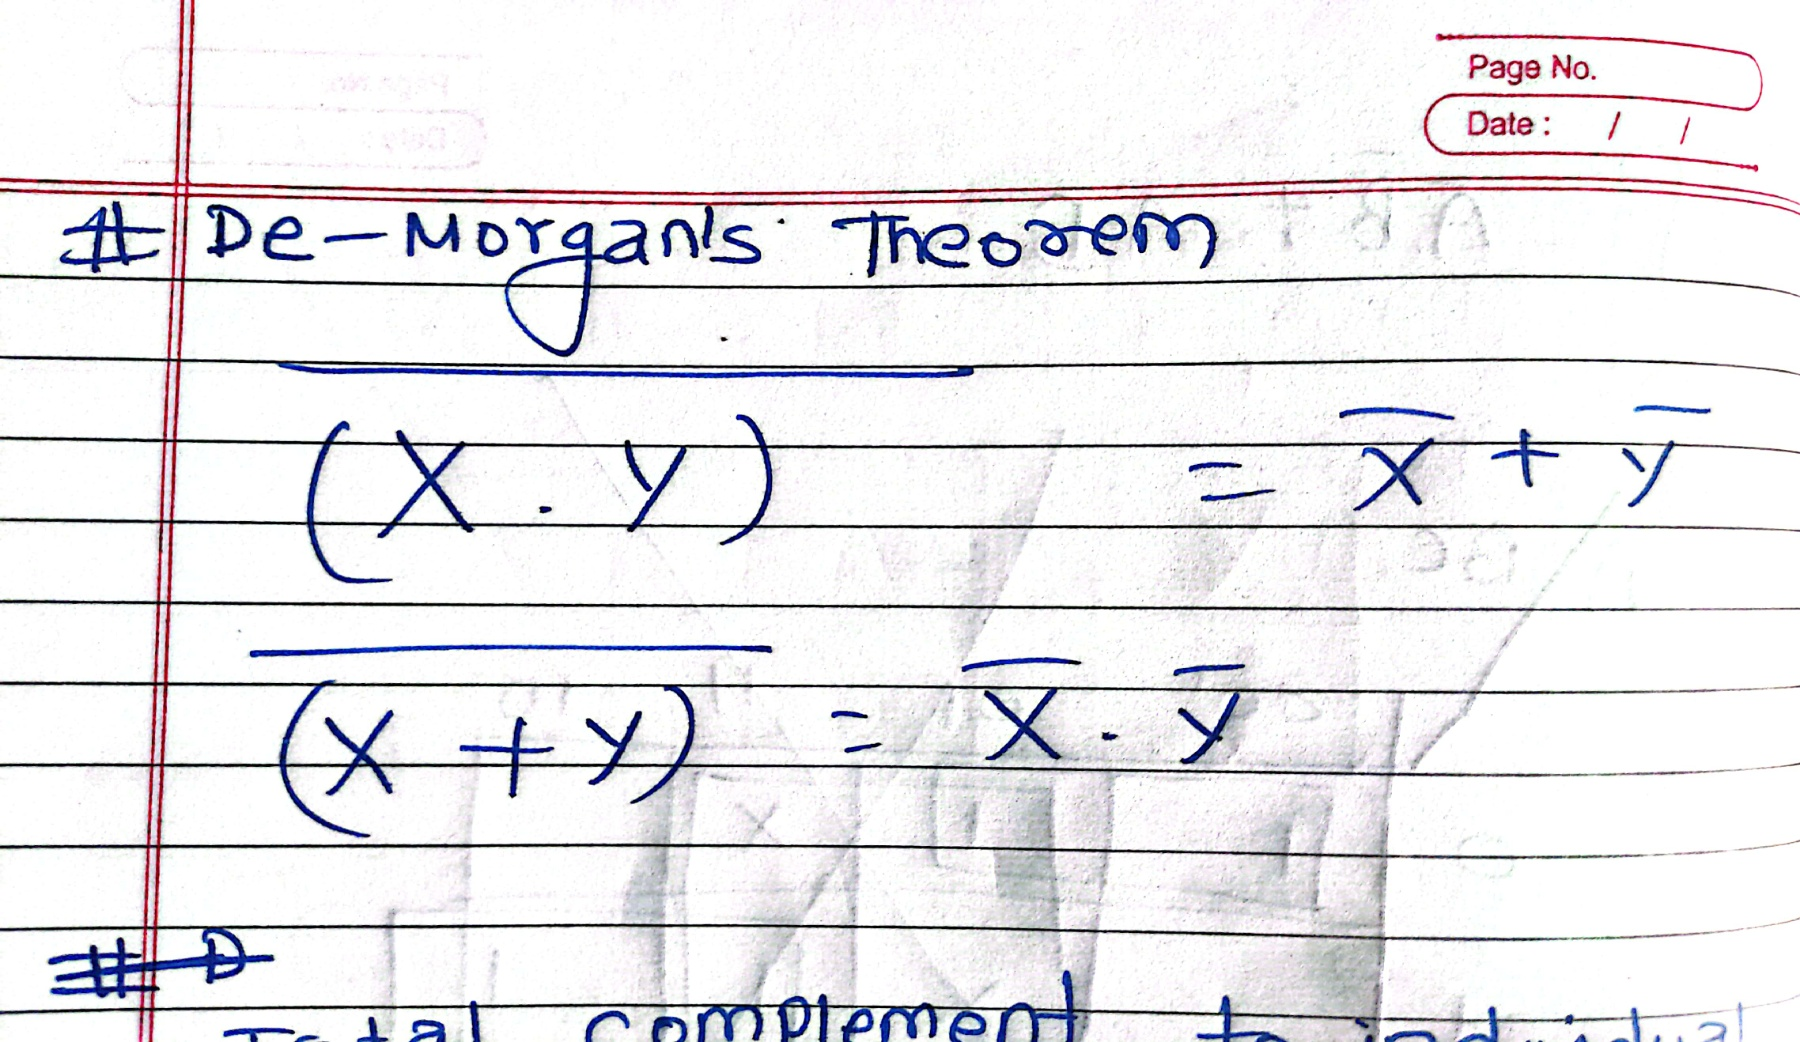 Page No.
Date : / /
# De-Morgan's Theorem
$\overline{(X . Y)} = \overline{X} + \overline{Y}$
$\overline{(X + Y)} = \overline{X} . \overline{Y}$
Total complement to individual